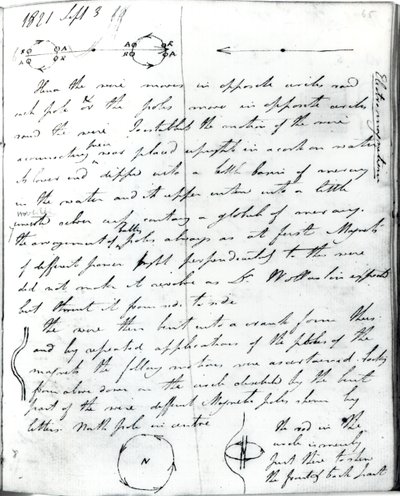 1821 Sept 3
65
R A R A
A R A R
Electromagnetism
Hence the wire moves in opposite circles round
each pole & or the poles move in opposite circles
round the wire. To establish the motion of the wire
a connecting piece was placed upright in a cork on water
its lower end dipped into a little basin of mercury
in the water and its upper entered into a little
inverted silver cup containing a globule of mercury.
The arrangement of poles always as at first. Magnets
of different power brought perpendicular to this wire
did not make it revolve as Dr. Wollaston expected
but thrust it from side to side
The wire then bent into a crank form thus:
and by repeated applications of the poles of the
magnet the following motions were ascertained, looking
from above down on the circle described by the bent
part of the wire, different Magnetic poles shown by
letters North pole in centre
N
The rod in the
circle is merely
put there to show
the front & back part